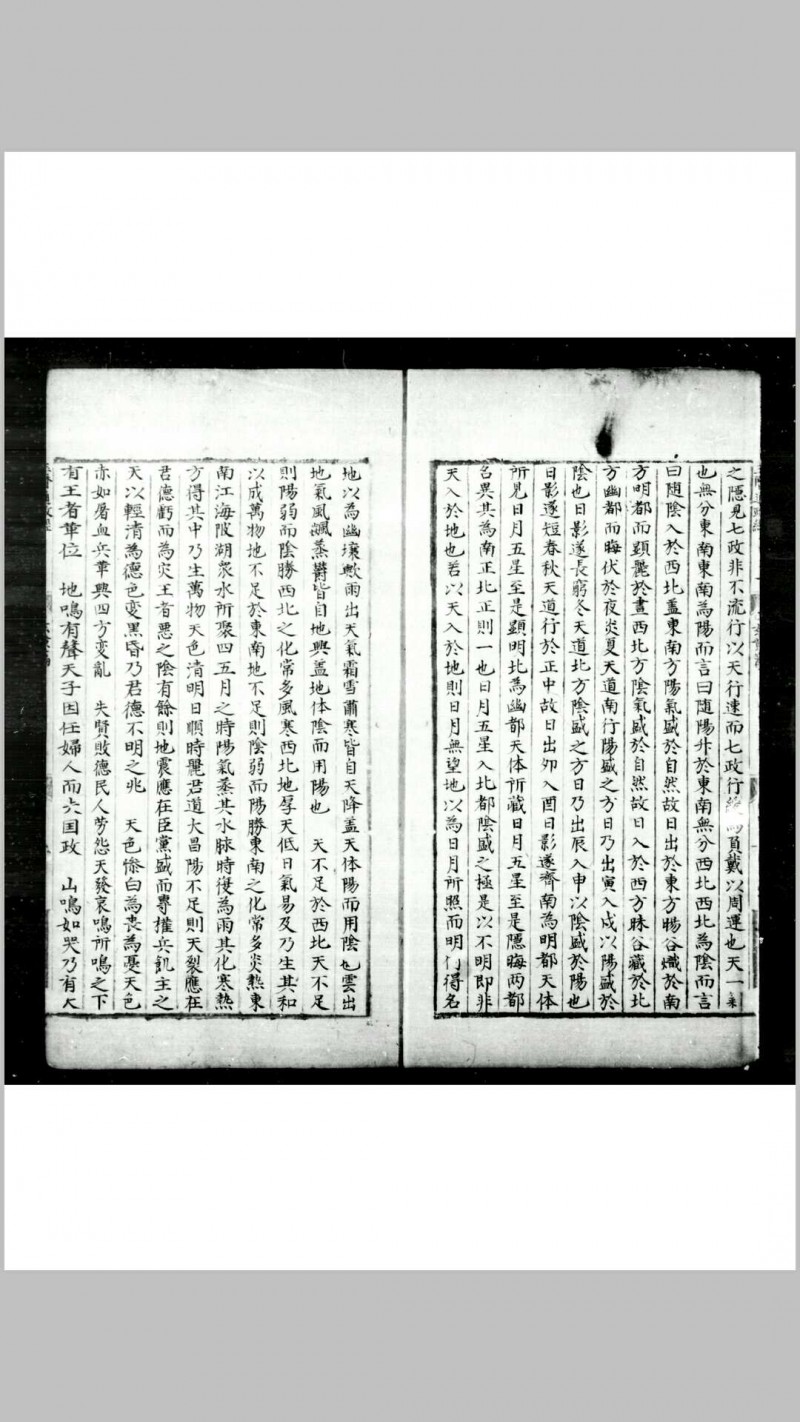 之隱見七政非不流行以天行速而七政行負戴以周運也天一
也無分東南東南為陽而言曰随陽升於東南無分西北西北為陰而言
曰随陰入於西北盖東南方陽氣盛於自然故日出於東方暘谷熾於南
方明都而顕麗於晝西北方陰氣盛於自然故日入於西方昧谷藏於北
方幽都而晦伏於夜炎夏天道南行陽盛之方日乃出寅入戍以陽盛於
陰也日影遂長窮冬天道北方陰盛之方日乃出辰入申以陰盛於陽也
日影遂短春秋天道行於正中故日出夘入酉日影遂齊南為明都天体
所見日月五星至是顕明北為幽都天体所藏日月五星至是隠晦两都
名異其為南正北正則一也日月五星入北都陰盛之極是以不明即非
天入於地也若以天入於地則日月無望地以為日月所照而明行得名
地以為幽壤歟雨出天氣霜雪肅寒皆自天降盖天体陽而用陰也雲出
地氣風飊蒸欝皆自地興盖地体陰而用陽也 天不足於西北天不足
則陽弱而陰勝西北之化常多風寒西北地厚天低日氣易及乃生其和
以成萬物地不足於東南地不足則陰弱而陽勝東南之化常多炎熱東
南江海陂湖衆水所聚四五月之時陽氣蒸其水脉時復為雨其化寒熱
方得其中乃生萬物天色清明日順時麗君道大昌陽不足則天裂應在
君德虧而為灾王者惡之陰有餘則地震應在臣黨盛而專權兵飢主之
天以輕清為德色變黒昏乃君德不明之兆 天色惨白為喪為憂天色
赤如屠血兵革興四方变亂 失賢敗德民人劳怨天發哀鳴所鳴之下
有王者革位 地鳴有聲天子因任婦人而六国政 山鳴如哭乃有大